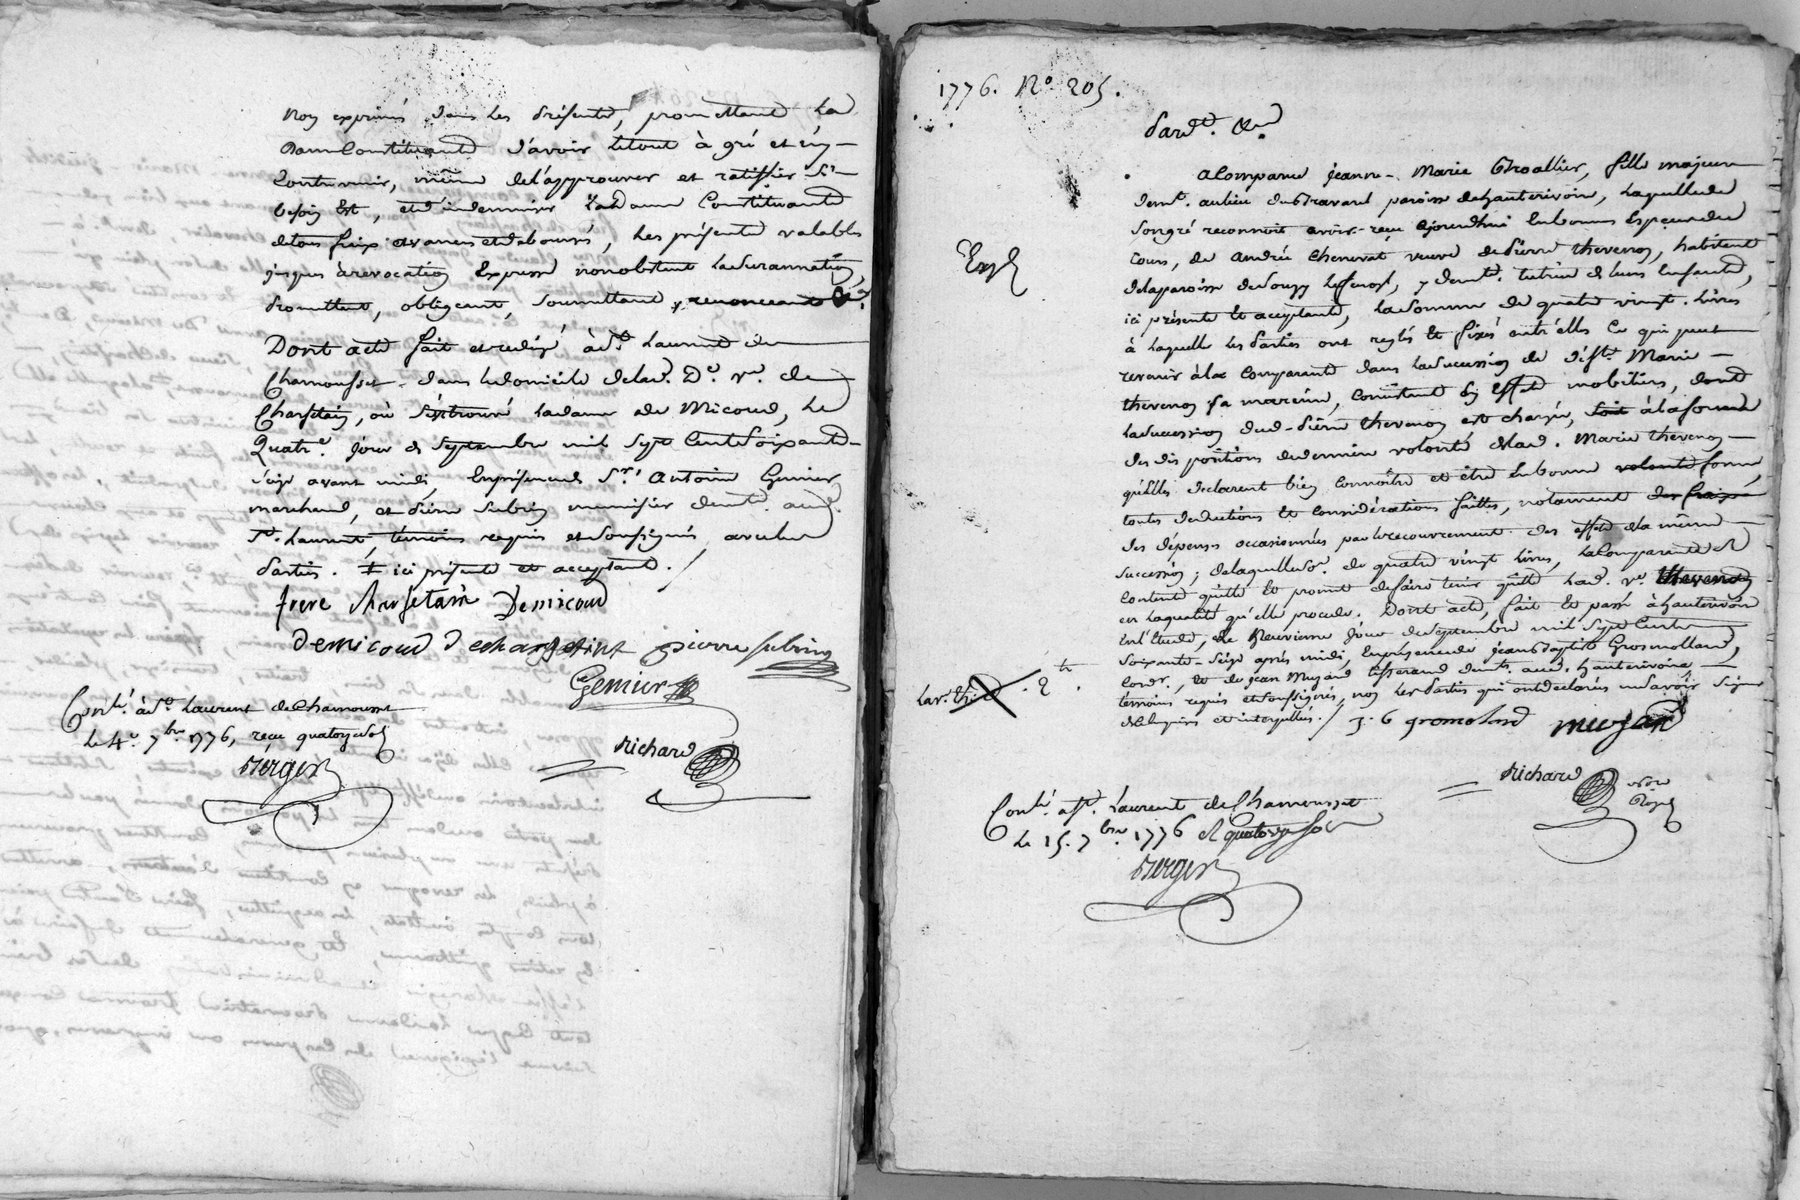 non exprimés dans les présentes, promettant la
dame Constituante d'avoir letout à gré et n'y
Contrevenir, même de l'approuver et ratiffier si
besoin Est, et d'indemniser ladame Constituante
detous fraix avances et debourés, les présentes valables
jusques à revocation Expresse nonobstant lasurannation,
Promettant, obligeant, soumettant, renonceant &a.
Dont acte fait et redigé à St. Laurent de
Chamousset dans le domicile de lad. De. ve. de
Charfetain, où s'est trouvé ladame de Micoud, le
Quatre. jour de Septembre mil Sept Cents Soixante-
seize avant midi, En présence de Sr. Antoine Genier
marchand, et Pierre Subrin menuisier demt. aud.
St. Laurent, témoins requis et soussignés, avec les
Parties. ici présente et acceptante.
frere Charfetain Demicoud
demicoud de charfetain pierre subrin
Genier
Richard
Conlé. à St. Laurent de Chamousset
le 4e. 7bre 1776, reçu quatorze sols
Berger
1776. No. 205.
Pardt. &a
A Comparu jeanne-Marie Thoallier, fille majeure
demt. au lieu du Travard paroisse de hauterivoire, laquelle de
son gré reconnoit avoir reçu ajourdhui En bonnes Especes du
Cours, de Andrée Chenevat veuve de Pierre Thevenon, habitent
Exp
de la paroisse de Souzy , y demt. tutrice de leurs Enfants,
ici présente et acceptante, la somme de quatre vingt livres
à laquelle les Parties ont reglés et fixés entr'elles Ce qui peut
revenir à la Comparante dans la succession de diffte. Marie
thevenon sa marreine, Consistant En Effets mobiliers, dont
la succession dud. Pierre thevenon est chargée, soit à la forme
des dispositions de derniere volonté de lad. Marie thevenon
qu'elles declarent bien Connoître et être En bonne volonté forme
toutes deductions et Considérations faittes, notament des fraix
des dépenses occasionnées par le recouvrement des effets de la même
succession; de laquelle se. de quatre vingt livres, la Comparante se
Contente quitte et promet de faire tenir quitte lad. ve. thevenon
en la qualité qu'elle procede. Dont acte, fait et passé à hauterivoire
En l'étude, le Neuvieme jour de septembre mil sept Cents
soixante-seize après midi, En présence de jean Baptiste Grosmolland,
Cordr., et de jean Muzard tisserand demts. aud. hauterivoire
2 tt.
témoins requis et soussignés, non les Parties qui ont declarés ne savoir signer
de Ce Enquises et interpellées. / J. B gromolard muzard
Richard
nore
Royal
Conlé à St. Laurent de Chamousset
le 15. 7bre. 1776 Rt quatorze sols
Berger